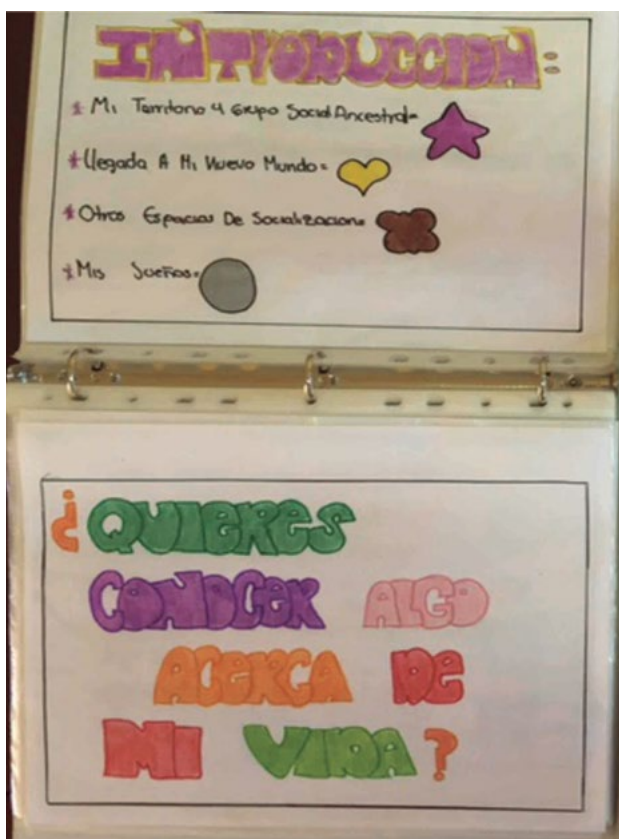 INTRODUCCION:
* Mi Territorio y Grupo Social Ancestral=
* Llegada A Mi Nuevo Mundo=
* Otros Espacios De Socialización=
* Mis Sueños=
¿QUIERES
CONOCER ALGO
ACERCA DE
MI VIDA?